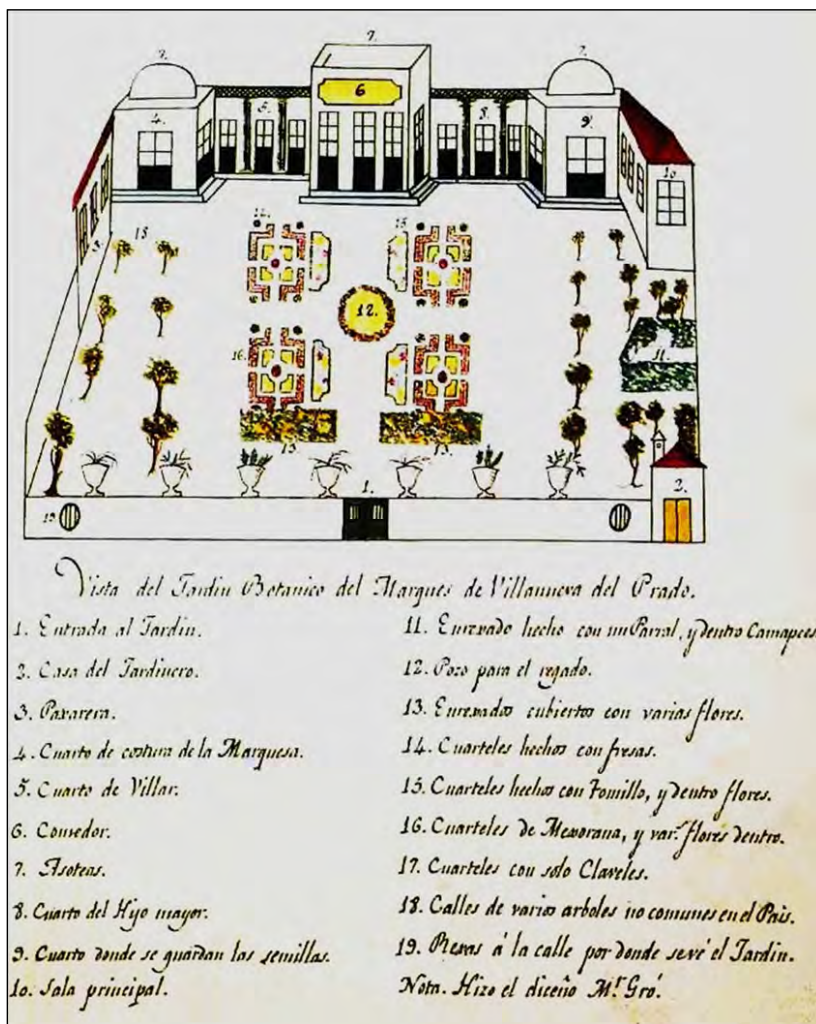 7. 7. 7.
6
4. 5. 8. 9.
10
3. 18
12.
11.
16.
13. 13.
1.
19 2.
Vista del Jardin Botanico del Marques de Villanueva del Prado.
1. Entrada al Jardin.
2. Casa del Jardinero.
3. Paxarera.
4. Cuarto de costura de la Marquesa.
5. Cuarto de Villar.
6. Comedor.
7. Asoteas.
8. Cuarto del Hijo mayor.
9. Cuarto donde se guardan las semillas.
10. Sala principal.
11. Enrexado hecho con un Parral, y dentro Camapees
12. Pozo para el regado.
13. Enrexados cubiertos con varias flores.
14. Cuarteles hechos con fresas.
15. Cuarteles hechos con Tomillo, y dentro flores.
16. Cuarteles de Mexorana, y var.s flores dentro.
17. Cuarteles con solo Claveles.
18. Calles de varios arboles no comunes en el Pais.
19. Rexas á la calle por donde se vé el Jardin.
Nota. Hizo el diceño M.r Gró.